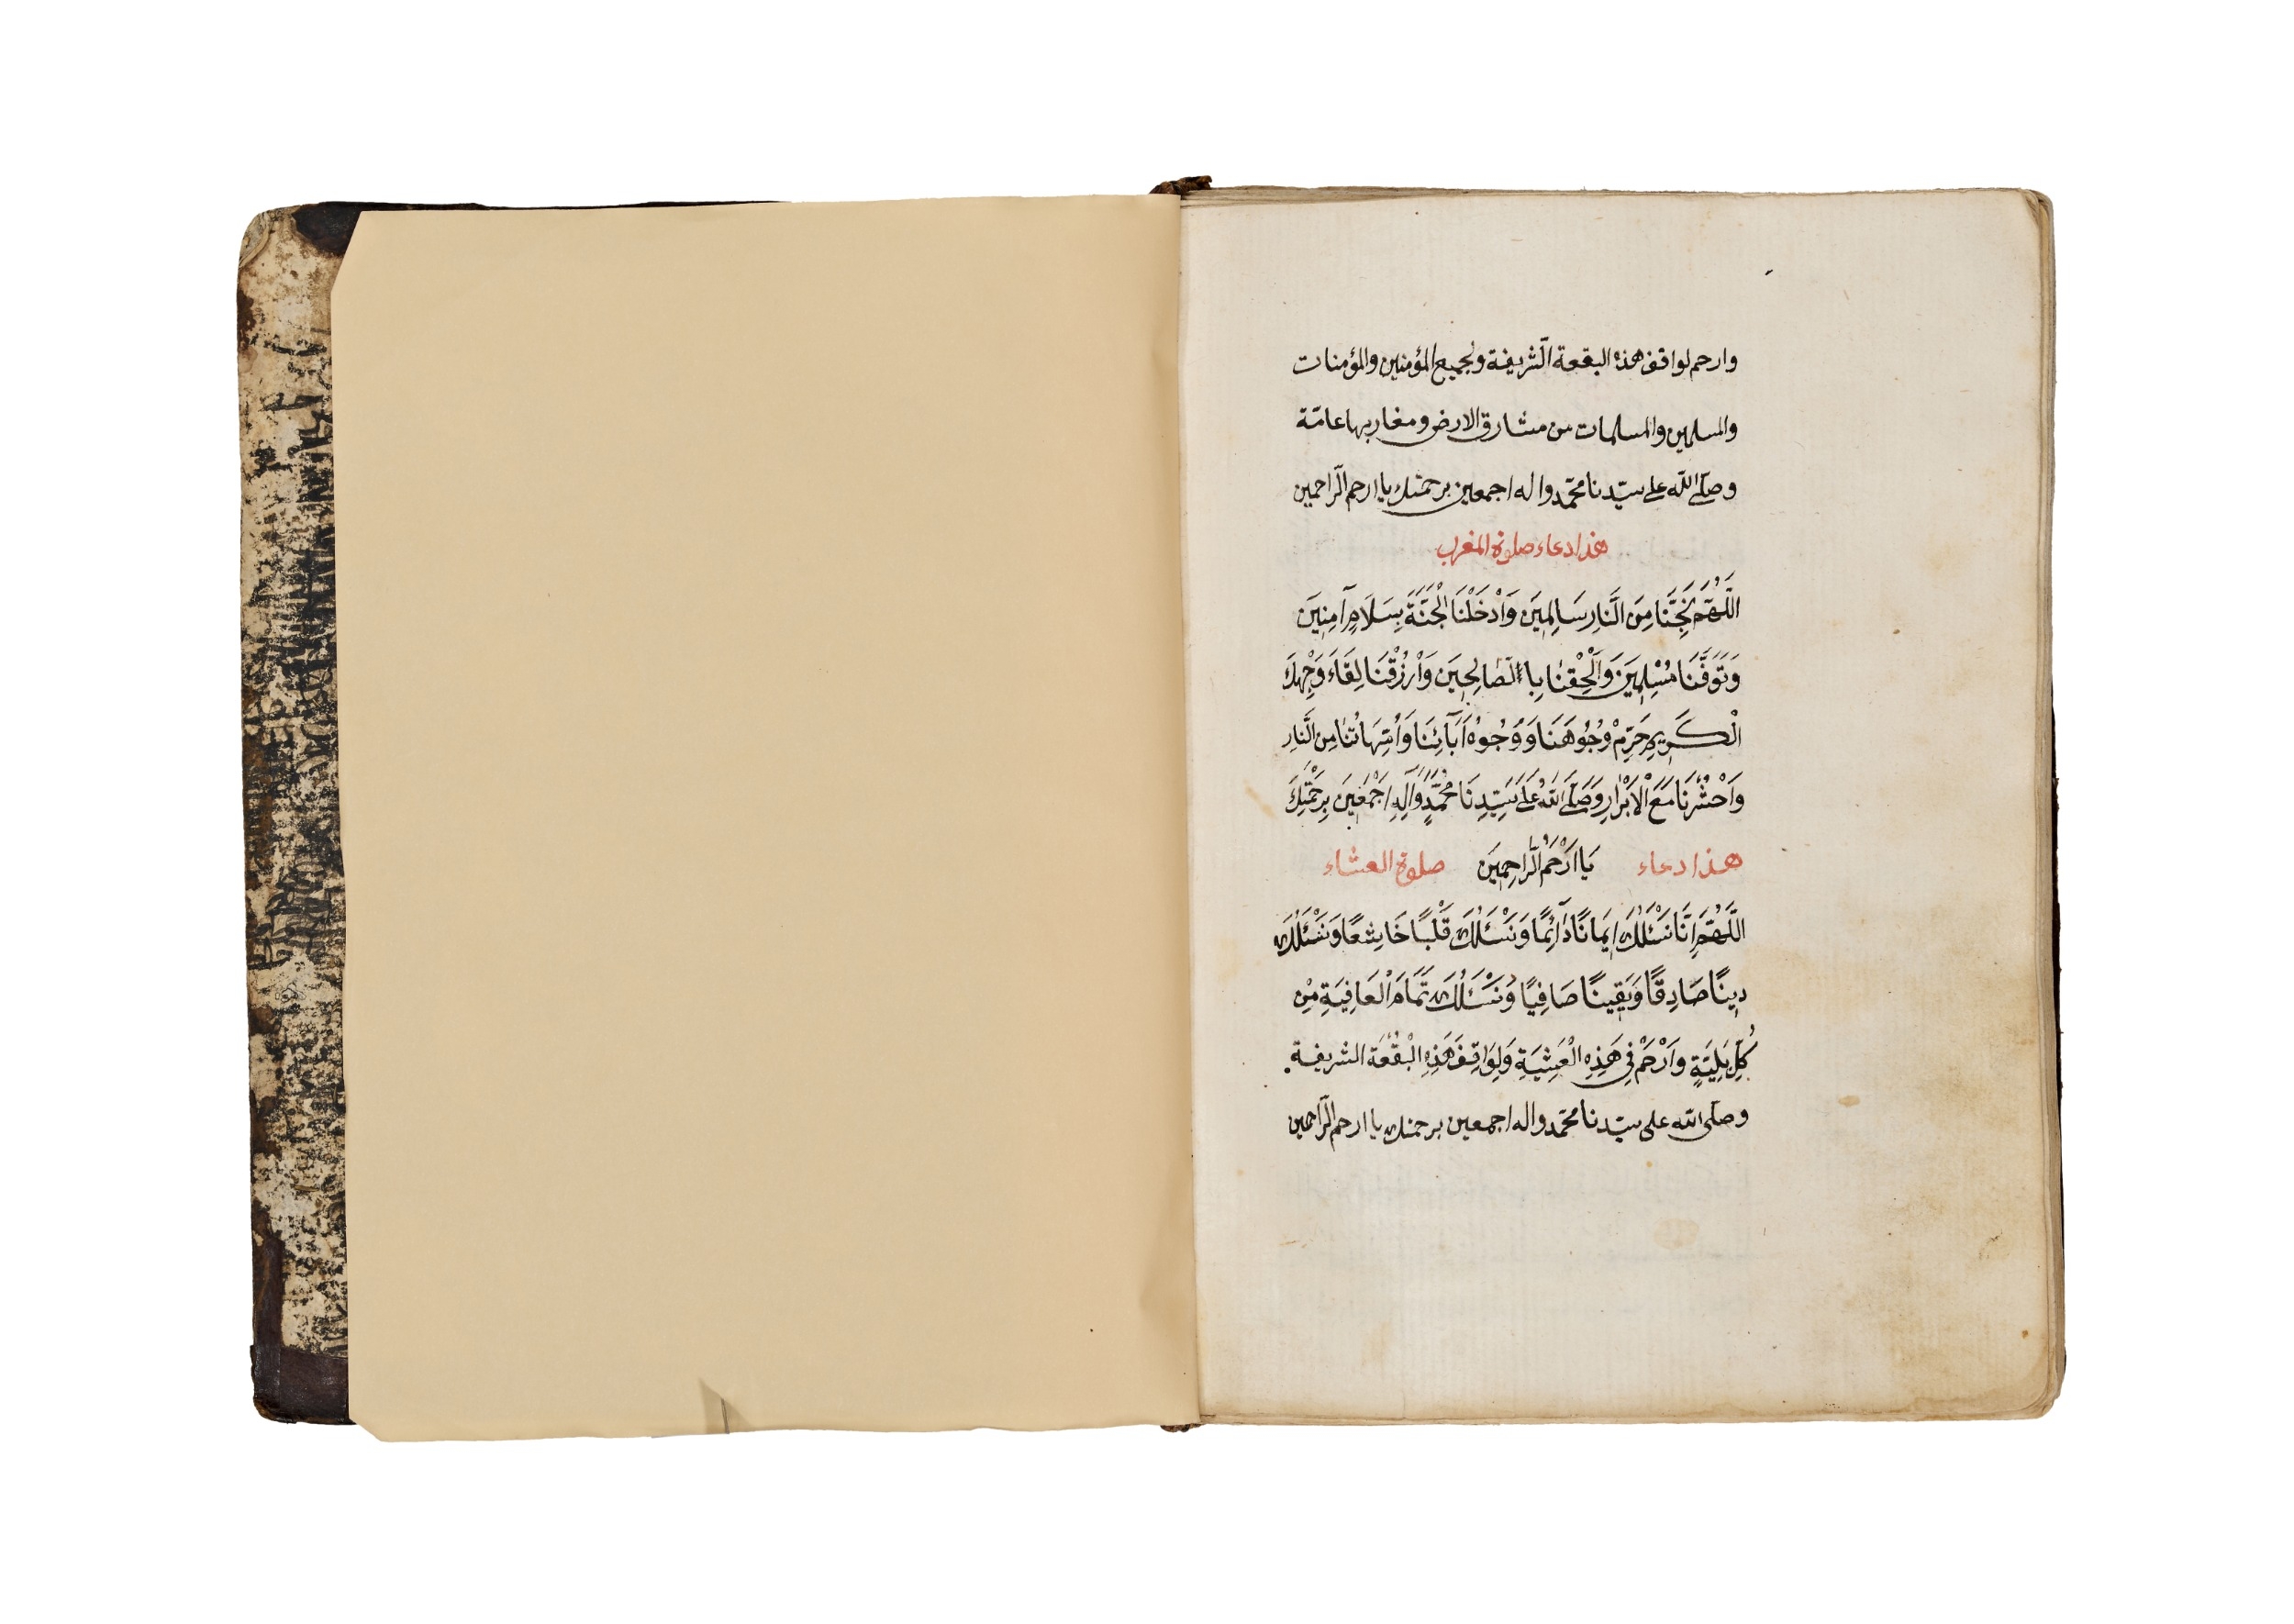 وارحم لواقف هذه البقعة الشّريفة ولجميع المؤمنين والمؤمنات
والمسلمين والمسلمات من مشارق الارض ومغاربها عامّة
وصلّى الله على سيّدنا محمّد واله اجمعين برحمتك يا ارحم الرّاحمين
هذا دعاء صلوة المغرب
اَللّٰهُمَّ نَجِّنَا مِنَ النَّارِ سَالِمِينَ وَاَدْخِلْنَا الْجَنَّةَ بِسَلَامٍ آمِنِينَ
وَتَوَفَّنَا مُسْلِمِينَ وَاَلْحِقْنَا بِاالصَّالِحِينَ وَارْزُقْنَا لِقَاءَ وَجْهِكَ
الْكَرِيمِ حَرِّمْ وُجُوهَنَا وَوُجُوهُ اَبَآئِنَا وَاُمَّهَاتُنَا مِنَ النَّارِ
وَاحْشُرْنَا مَعَ الْاَبْرَارِ وَصَلَّى اللهُ عَلَى سَيِّدِنَا مُحَمَّدٍ وَآلِهِ اَجْمَعِينَ بِرَحْمَتِكَ
هذا دعاء يَا اَرْحَمَ الرَّاحِمِينَ صلوة العشاء
اَللّٰهُمَّ اِنَّا نَسْئَلُكَ اِيمَانًا دَآئِمًا وَنَسْئَلُكَ قَلْبًا خَاشِعًا وَنَسْئَلُكَ
دِينًا صَادِقًا وَيَقِينًا صَافِيًا وَنَسْئَلُكَ تَمَامَ الْعَافِيَةِ مِنْ
كُلِّ بَلِيَّةٍ وَارْحَمْ فِي هَذِهِ الْعَشِيَةِ وَلِوَاقِفَ هَذِهِ الْبُقْعَة الشريفة.
وصلّى الله على سيّدنا محمّد واله اجمعين برحمتك يا ارحم الرّاحمين